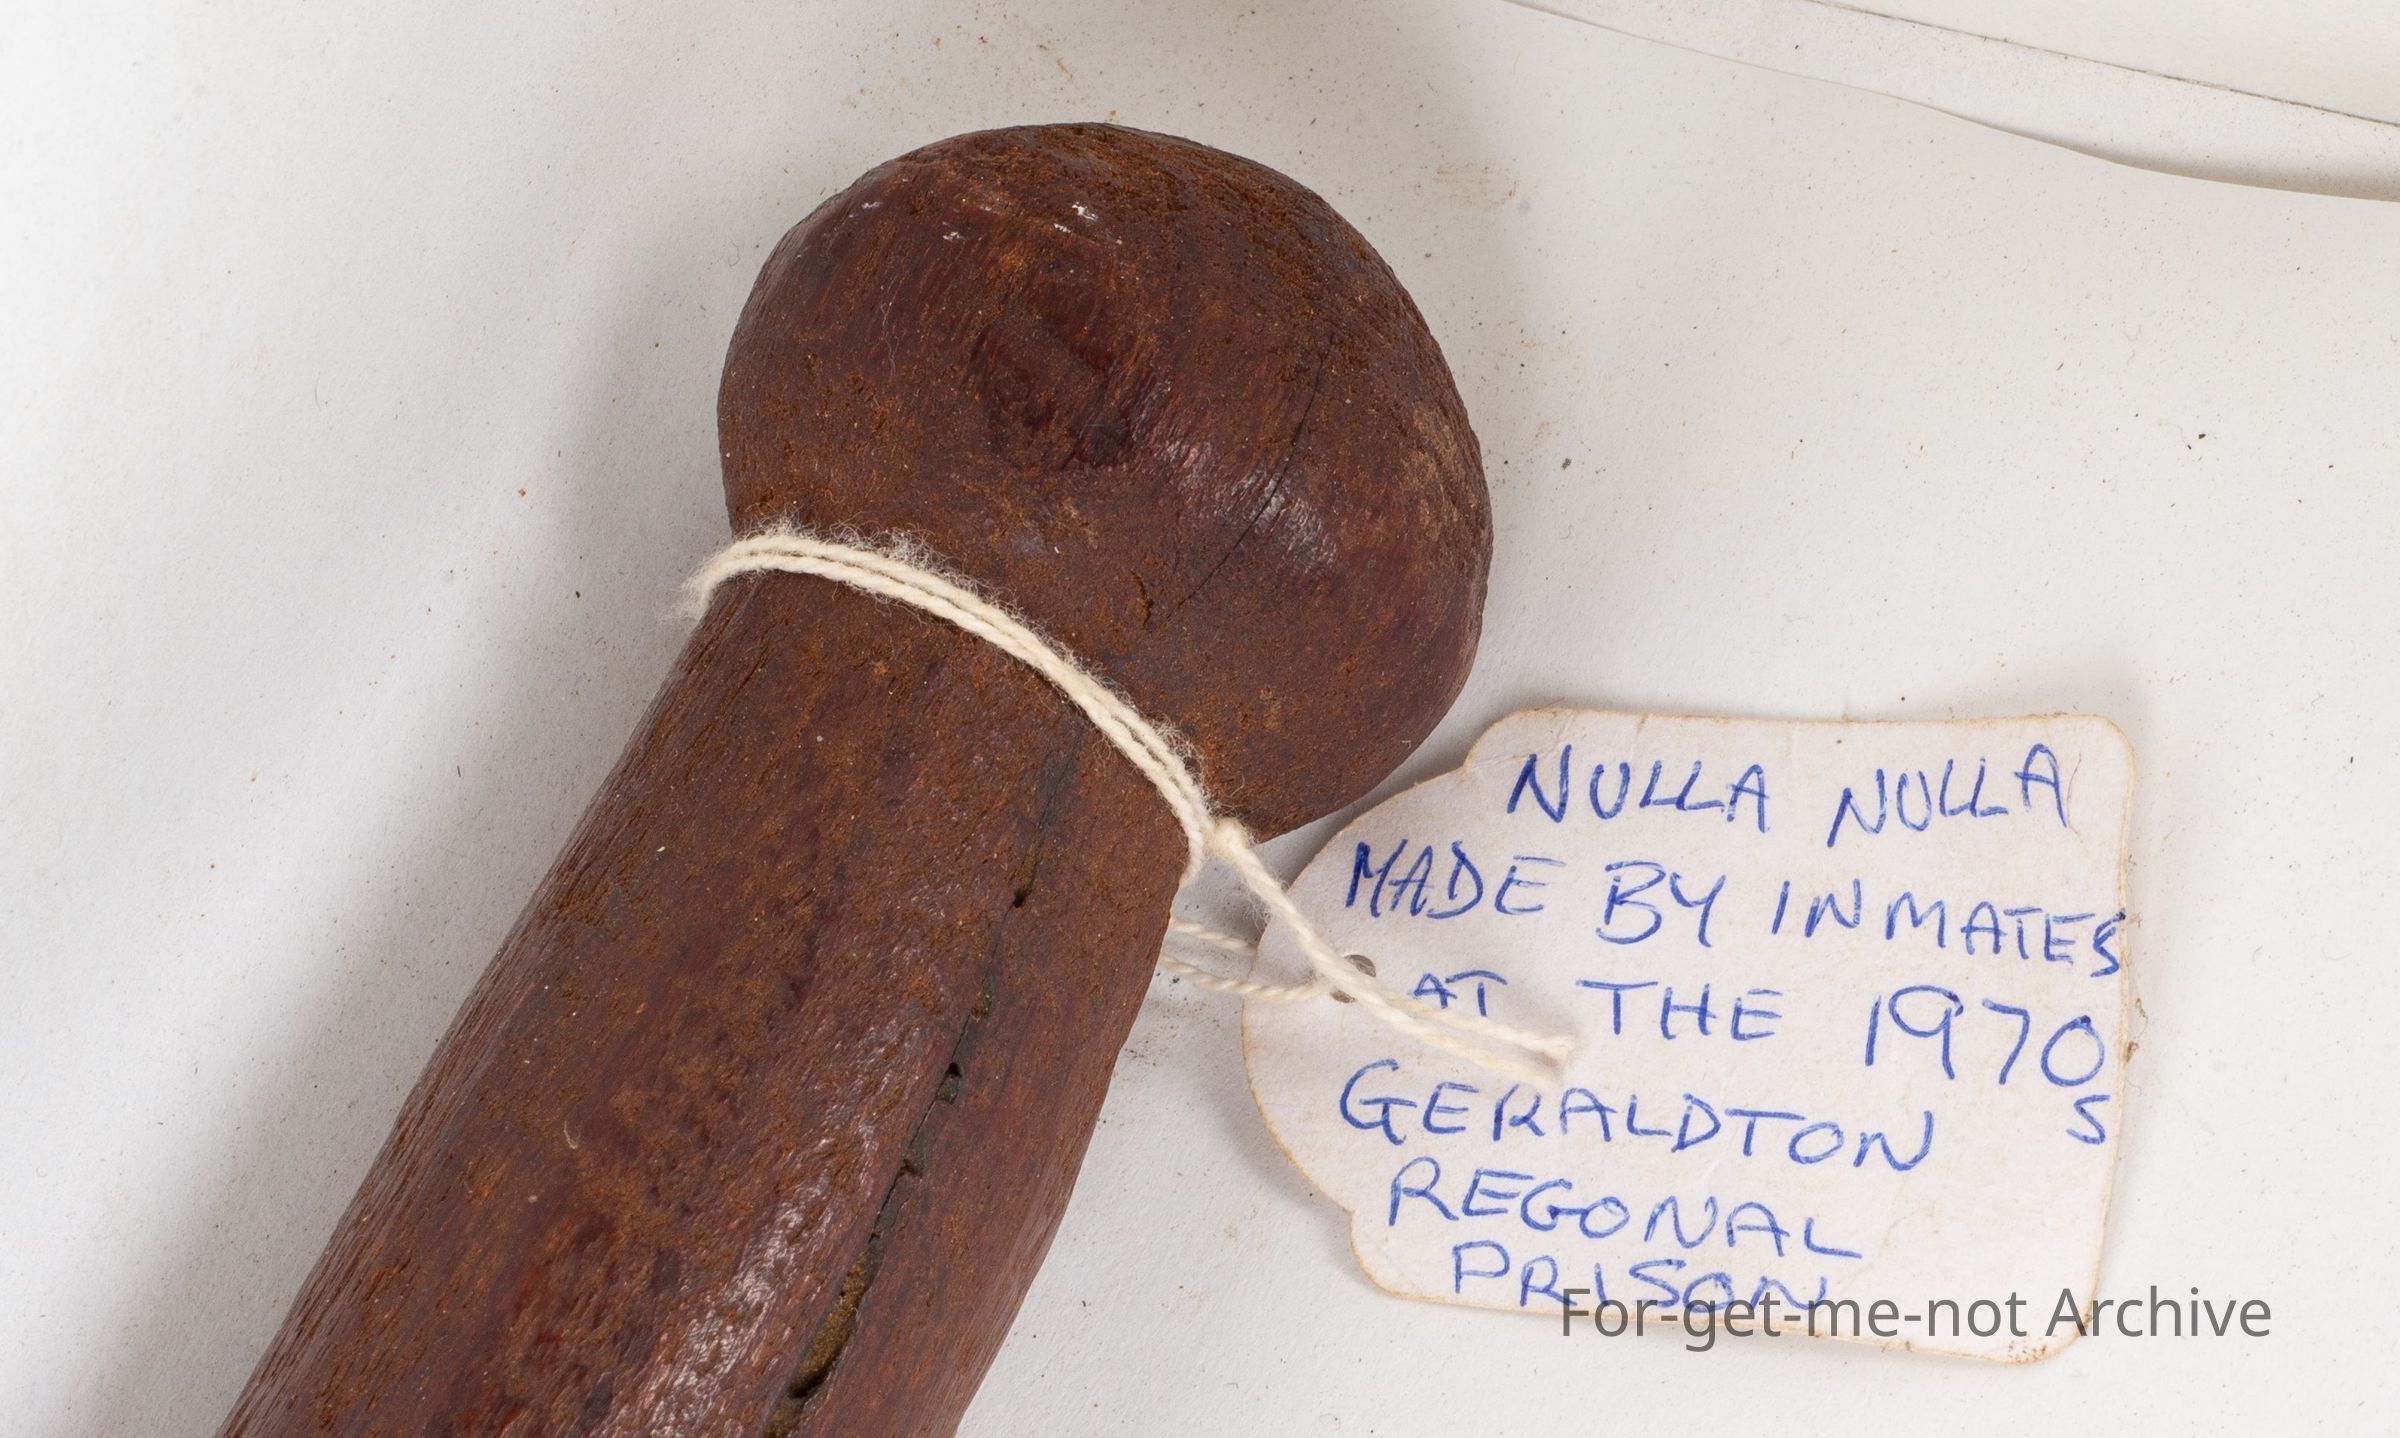 NULLA NULLA
MADE BY INMATES
AT THE 1970s
GERALDTON
REGONAL
PRISON
For-get-me-not Archive